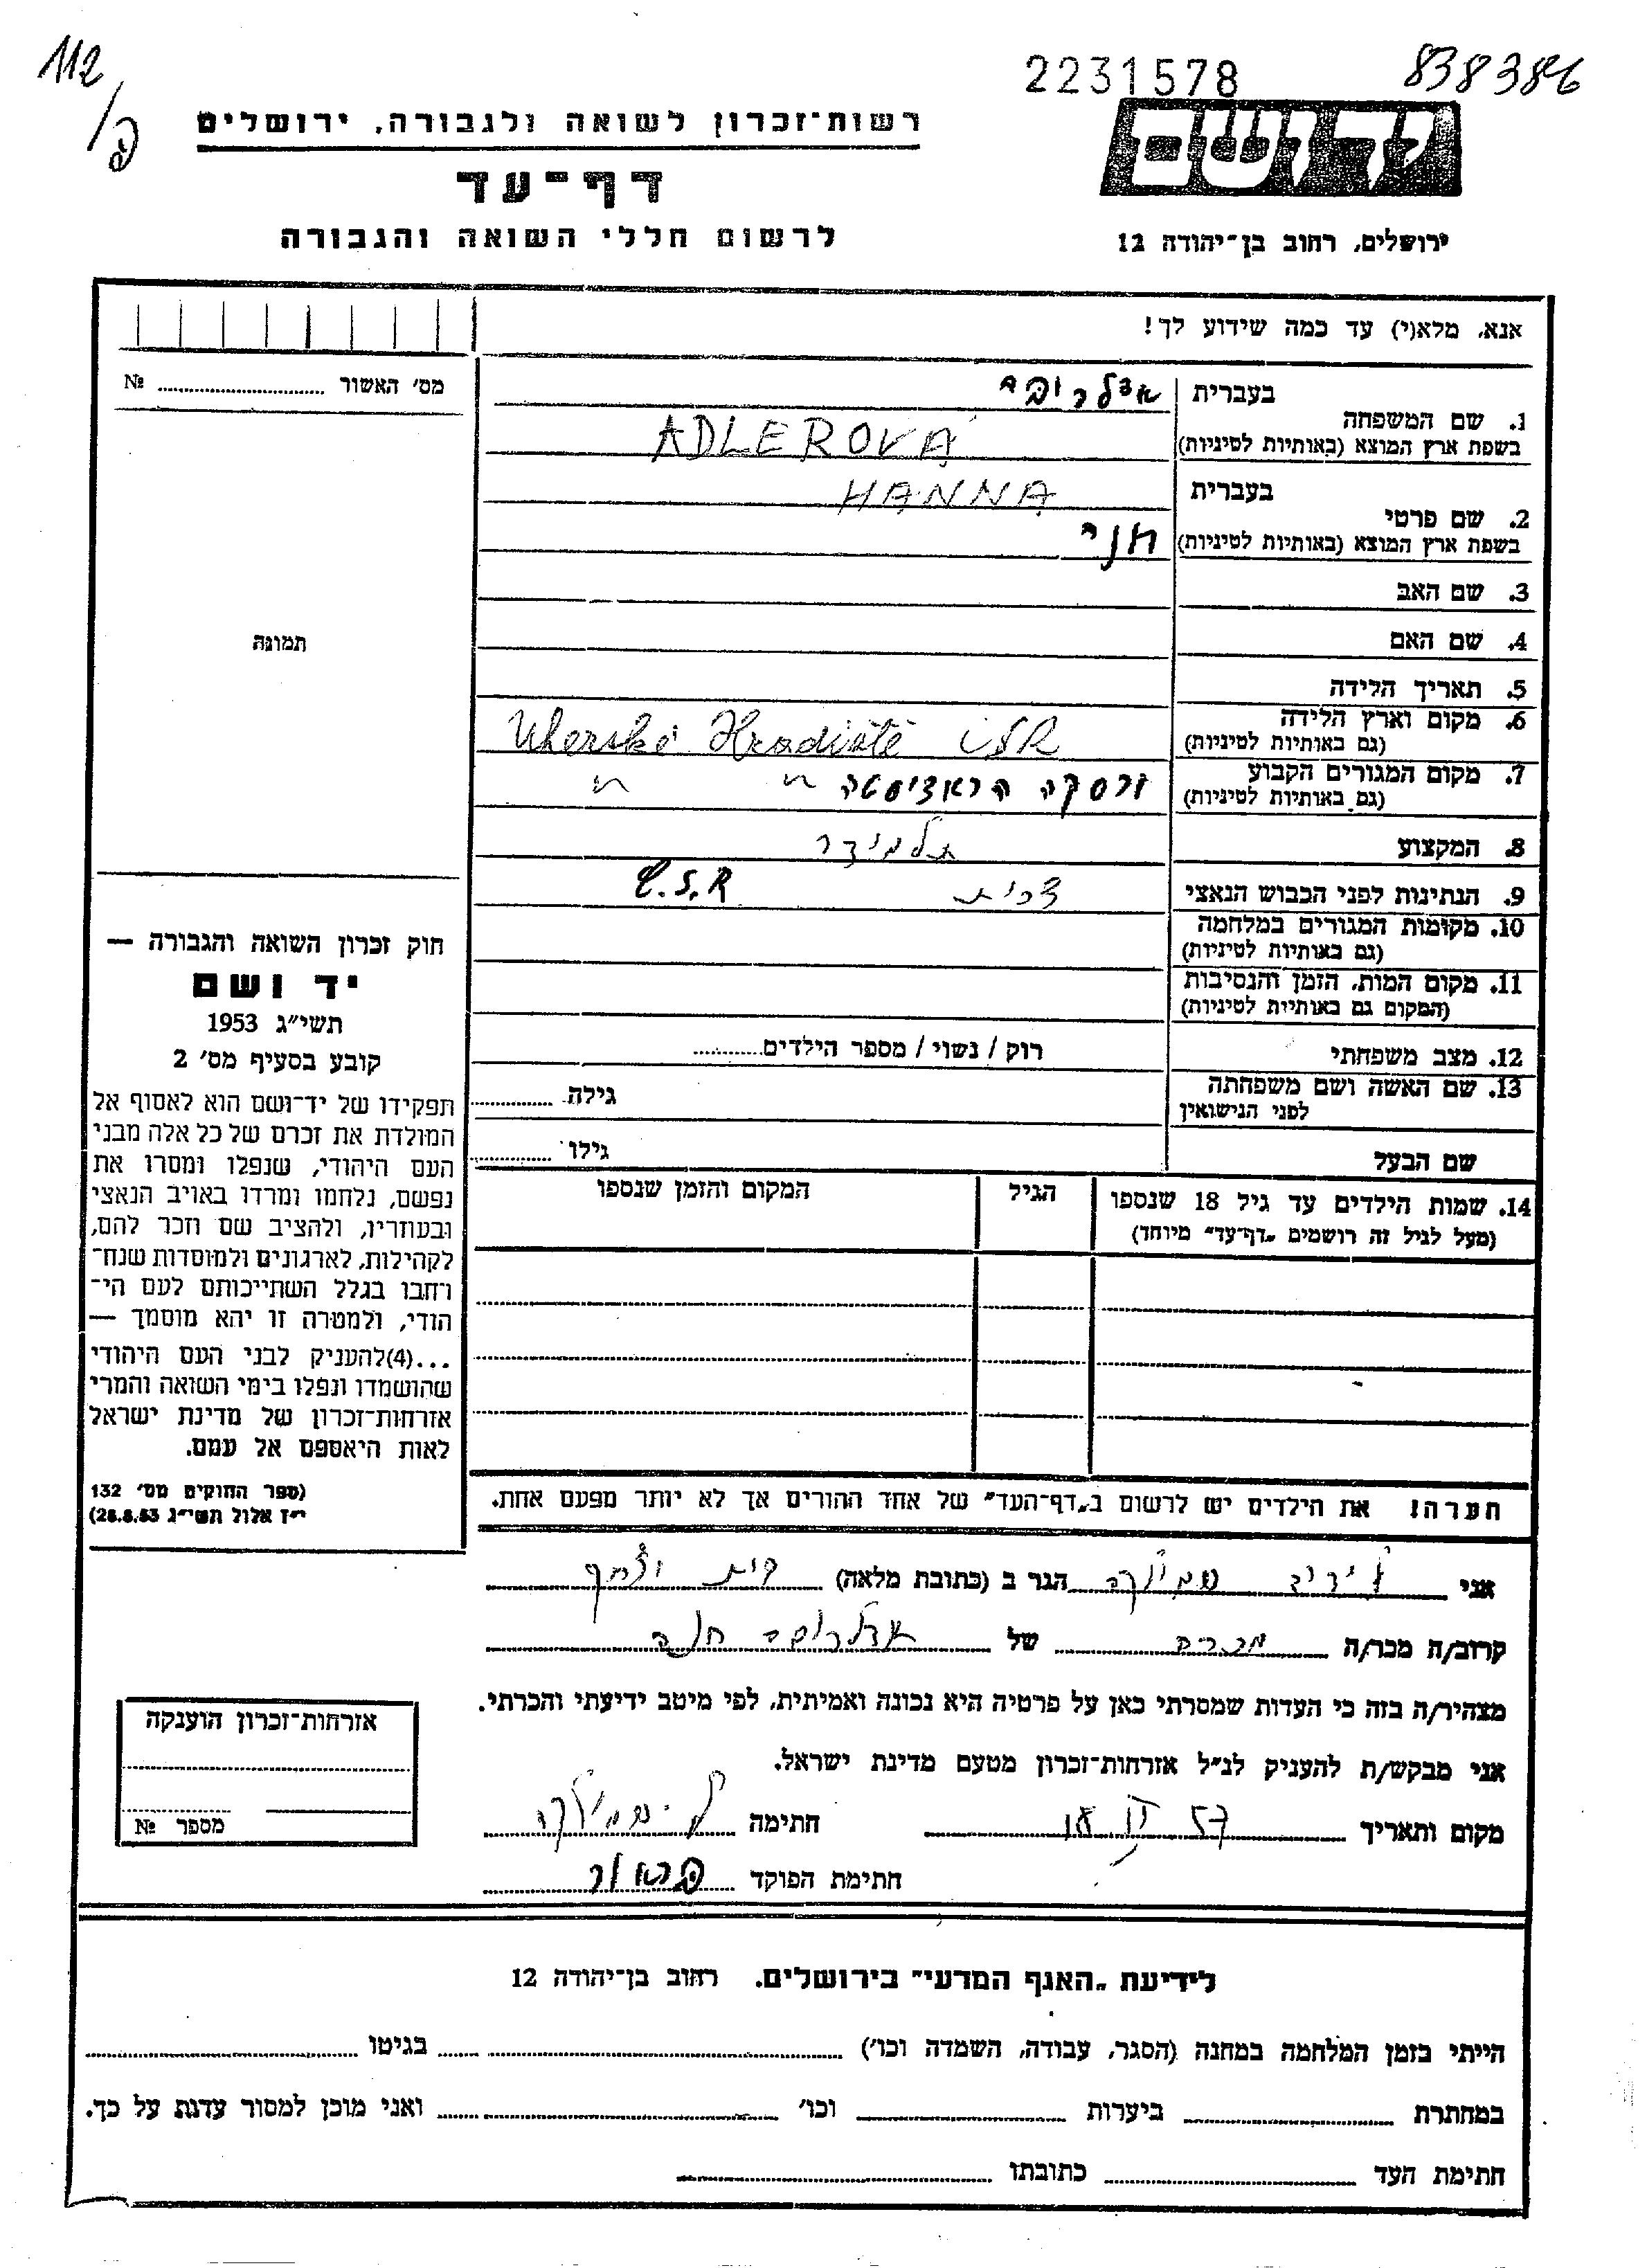 112
פ/
2231578
838386
רשות־זכרון לשואה ולגבורה, ירושלים
יד ושם
דף־עד
לרשום חללי השואה והגבורה
ירושלים, רחוב בן־יהודה 12
אנא, מלא(י) עד כמה שידוע לך!
מס׳ האשור № 
בעברית אדלרובה
1. שם המשפחה
בשפת ארץ המוצא (באותיות לטיניות) ADLEROVÁ
בעברית HANNA
2. שם פרטי
בשפת ארץ המוצא (באותיות לטיניות) חני
3. שם האב
4. שם האם
תמונה
5. תאריך הלידה
6. מקום וארץ הלידה
(גם באותיות לטיניות) Uherské Hradiště ČSR
7. מקום המגורים הקבוע
(גם באותיות לטיניות) הראדישטה " "
8. המקצוע
9. הנתינות לפני הכבוש הנאצי צכית Č.S.R
10. מקומות המגורים במלחמה
(גם באותיות לטיניות)
11. מקום המות, הזמן והנסיבות
(המקום גם באותיות לטיניות)
12. מצב משפחתי רוק / נשוי / מספר הילדים
13. שם האשה ושם משפחתה
לפני הנישואין
גילה
שם הבעל גילו
14. שמות הילדים עד גיל 18 שנספו
(מעל לגיל זה רושמים „דף־עד״ מיוחד)
הגיל
המקום והזמן שנספו
חוק זכרון השואה והגבורה —
יד ושם
תשי״ג 1953
קובע בסעיף מס׳ 2
תפקידו של יד־ושם הוא לאסוף אל
המולדת את זכרם של כל אלה מבני
העם היהודי, שנפלו ומסרו את
נפשם, נלחמו ומרדו באויב הנאצי
ובעוזריו, ולהציב שם וזכר להם,
לקהילות, לארגונים ולמוסדות שנח־
רחבו בגלל השתייכותם לעם הי־
הודי, ולמטרה זו יהא מוסמך —
...(4)להעניק לבני העם היהודי
שהושמדו ונפלו בימי השואה והמרי
אזרחות־זכרון של מדינת ישראל
לאות היאספם אל עמם.
(ספר החוקים מס׳ 132
י״ז אלול תשי״ג 28.8.53)
הערה! את הילדים יש לרשום ב„דף־העד״ של אחד ההורים אך לא יותר מפעם אחת.
אני הגר ב (כתובת מלאה)
קרוב/ה מכר/ה של אדלרובה חנה
מצהיר/ה בזה כי העדות שמסרתי כאן על פרטיה היא נכונה ואמיתית, לפי מיטב ידיעתי והכרתי.
אני מבקש/ת להעניק לנ״ל אזרחות־זכרון מטעם מדינת ישראל.
מקום ותאריך 18 II 57 חתימה
חתימת הפוקד
אזרחות־זכרון הוענקה
מספר №
לידיעת „האגף המדעי״ בירושלים. רחוב בן־יהודה 12
הייתי בזמן המלחמה במחנה (הסגר, עבודה, השמדה וכו׳) בגיטו
במחתרת ביערות וכו׳ ואני מוכן למסור עדות על כך.
חתימת העד כתובתו